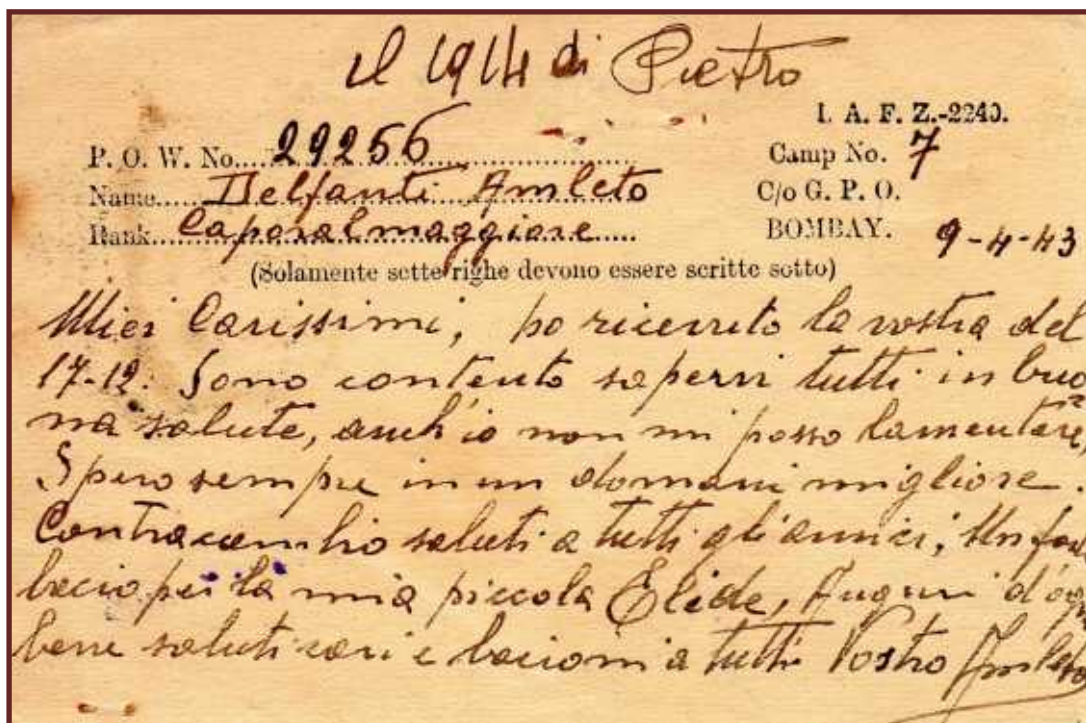 il 1914 di Pietro
I. A. F. Z.-2240.
P. O. W. No. 29256 Camp No. 7
Name Delfanti Amleto C/o G. P. O.
Rank Caporalmaggiore BOMBAY. 9-4-43
(Solamente sette righe devono essere scritte sotto)
Miei Carissimi, ho ricevuto la vostra del
17-12. Sono contento sapervi tutti in buo
na salute, anch'io non mi posso lamentare,
Spero sempre in un domani migliore.
Contracambio saluti a tutti gli amici, Un
bacio per la mia piccola Elide, Auguri d'ogni
bene saluti cari e bacioni a tutti Vostro Amleto